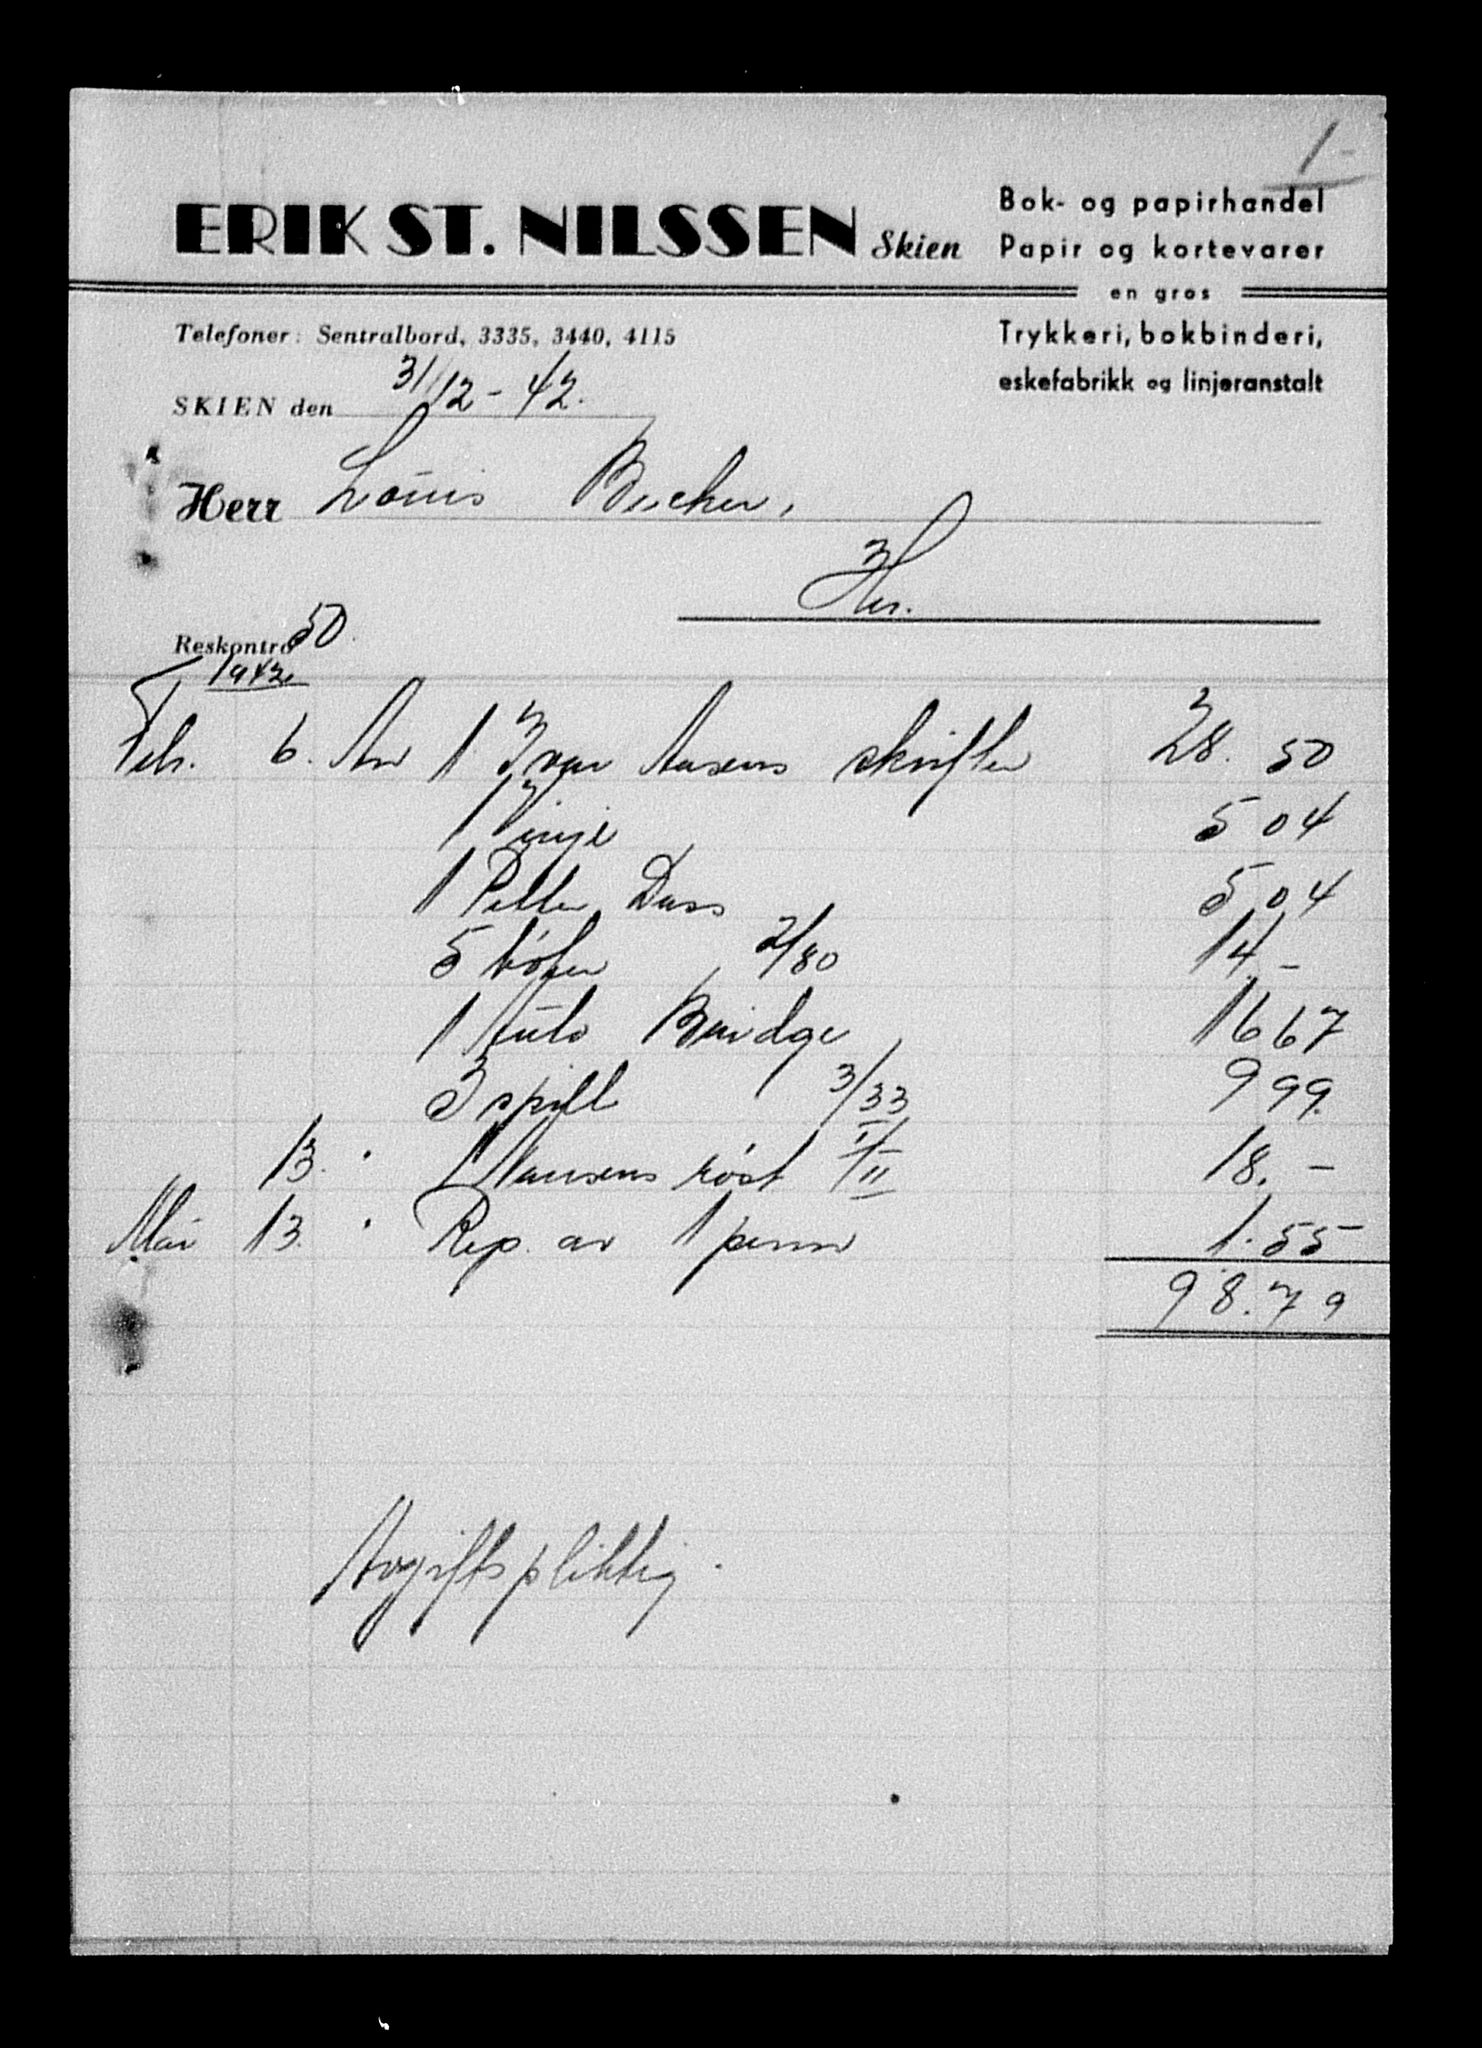 1-
ERIK ST. NILSSEN Skien
Bok- og papirhandel
Papir og kortevarer
en gros
Trykkeri, bokbinderi,
eskefabrikk og linjeranstalt
Telefoner: Sentralbord, 3335, 3440, 4115
SKIEN den 31/12-42.
Herr Louis Becker,
Her.
Reskontro 50.
1942
Feb. 6. An 1 Ivar Aasens skrifter 28. 50
1 Vinje 5 04
1 Petter Dass 5 04
5 bøker 2/80 14.-
1 Auto Bridge 16 67
3 spill 3/33 9 99.
13. " Nansens røst I/II 18.-
Mai 13. " Rep. av 1 penn 1.55
98.79
Avgiftspliktig.